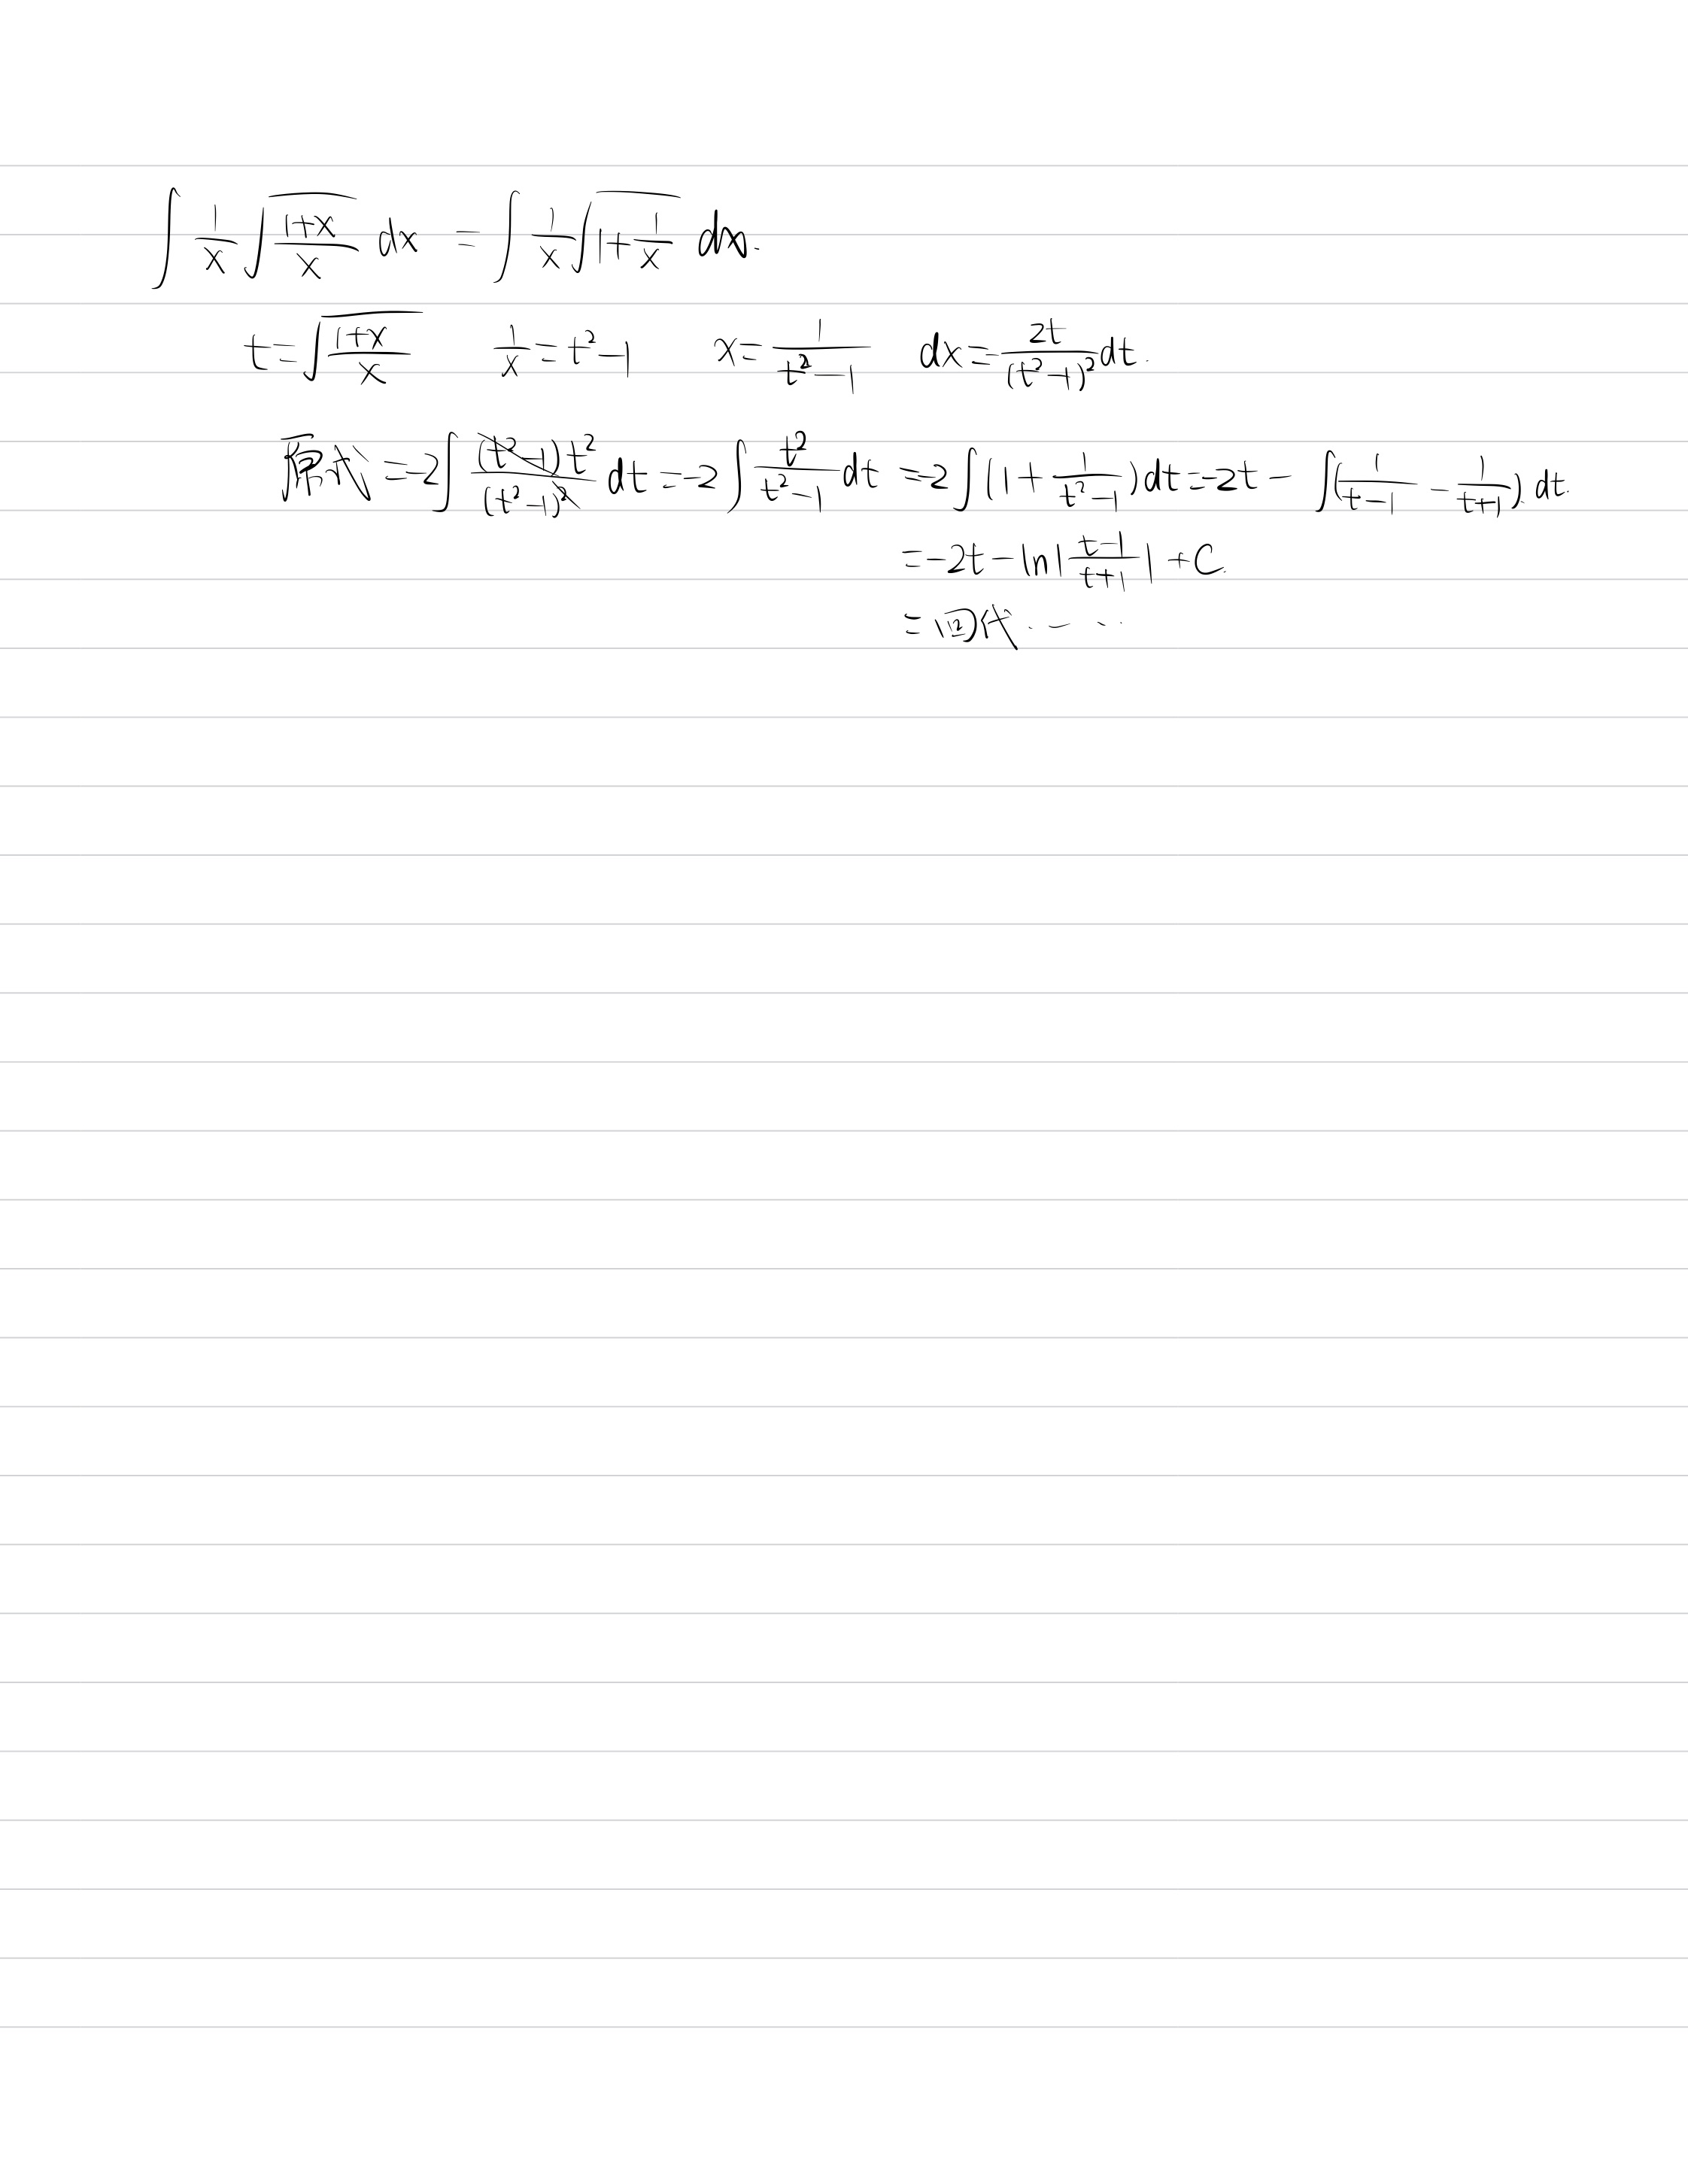 ∫ 1/x √((1+x)/x) dx = ∫ 1/x √(1+1/x) dx.
t=√((1+x)/x) 1/x=t²-1 x=1/(t²-1) dx=-2t/(t²-1)² dt.
原式=-2∫ (t²-1)t²/(t²-1)² dt=-2∫ t²/(t²-1) dt =-2∫(1+1/(t²-1))dt=-2t-∫(1/(t-1)-1/(t+1)).dt.
=-2t-ln|(t-1)/(t+1)|+C.
=回代……